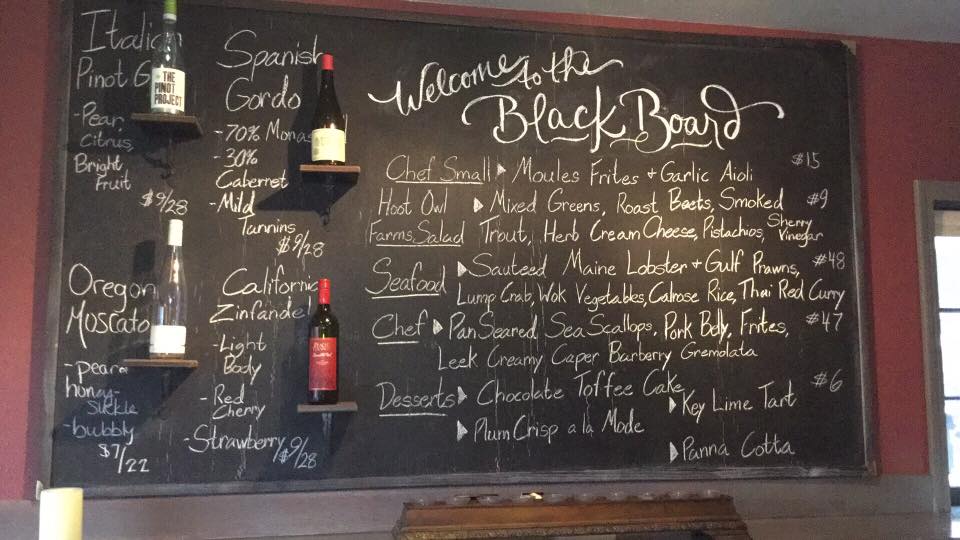 Italian
Pinot G
THE
PINOT
PROJECT
-Pear
Citrus
Bright
Fruit
$9/28
Oregon
Moscato
-pear
honey-
suckle
-bubbly
$7/22
Spanish
Gordo
-70% Monas
-30%
Cabernet
-Mild
Tannins
$9/28
California
Zinfandel
-Light
Body
-Red
Cherry
-Strawberry
$9/28
Welcome to the
BlackBoard
Chef Small ▸ Moules Frites + Garlic Aioli $15
Hoot Owl ▸ Mixed Greens, Roast Beets, Smoked $9
Farms Salad Trout, Herb Cream Cheese, Pistachios, Sherry Vinegar
Seafood ▸ Sauteed Maine Lobster + Gulf Prawns, $48
Lump Crab, Wok Vegetables, Calrose Rice, Thai Red Curry
Chef ▸ Pan Seared Sea Scallops, Pork Belly, Frites, $47
Leek Creamy Caper Barberry Gremolata
Desserts ▸ Chocolate Toffee Cake $6
▸ Key Lime Tart
▸ Plum Crisp a la Mode
▸ Panna Cotta